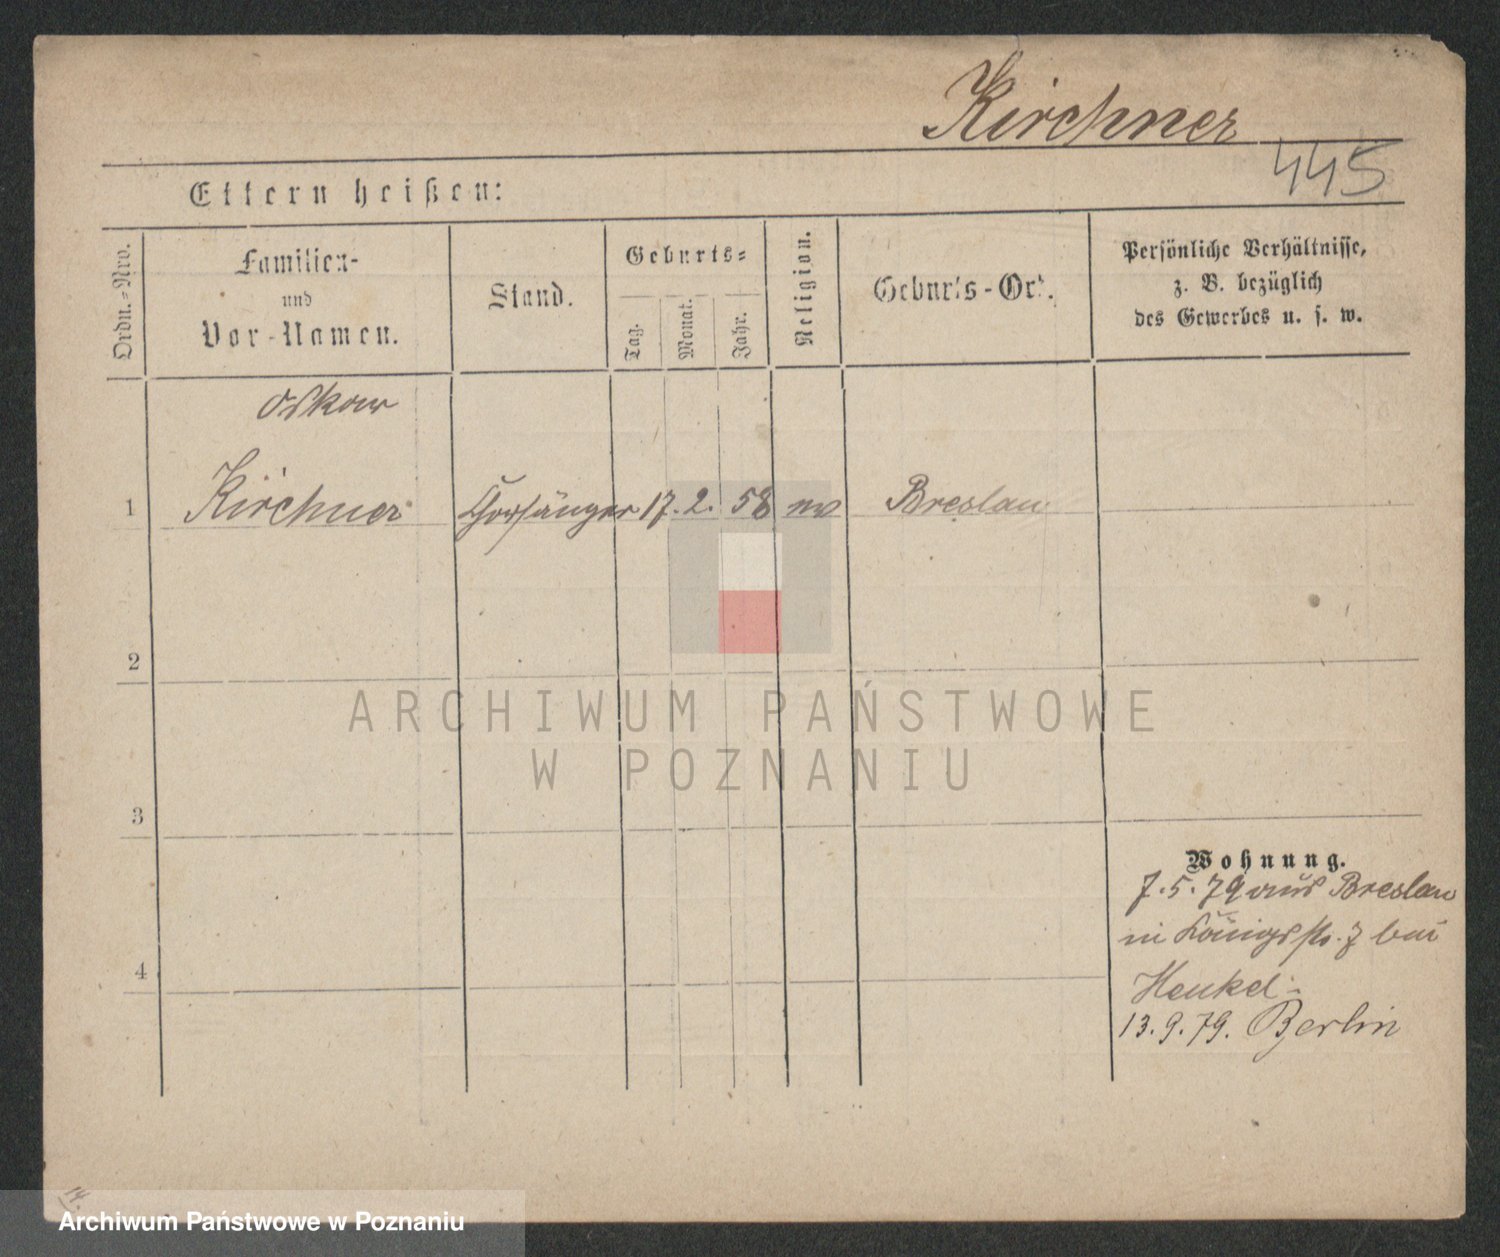 Kirchner
445
Eltern heißen:
Ordn.-Nro.
Familien-
und
Vor-Namen.
Stand.
Geburts-
Tag.
Monat.
Jahr.
Religion.
Geburts-Ort.
Persönliche Verhältnisse,
z. B. bezüglich
des Gewerbes u. s. w.
Oskar
1 Kirchner Chorsänger 17. 2. 58 ev Breslau
2
3
4
Wohnung.
7. 5. 79 aus Breslau
in Königsstr. 7 bei
Henkel -
13. 9. 79. Berlin
14.
ARCHIWUM PAŃSTWOWE
W POZNANIU
Archiwum Państwowe w Poznaniu